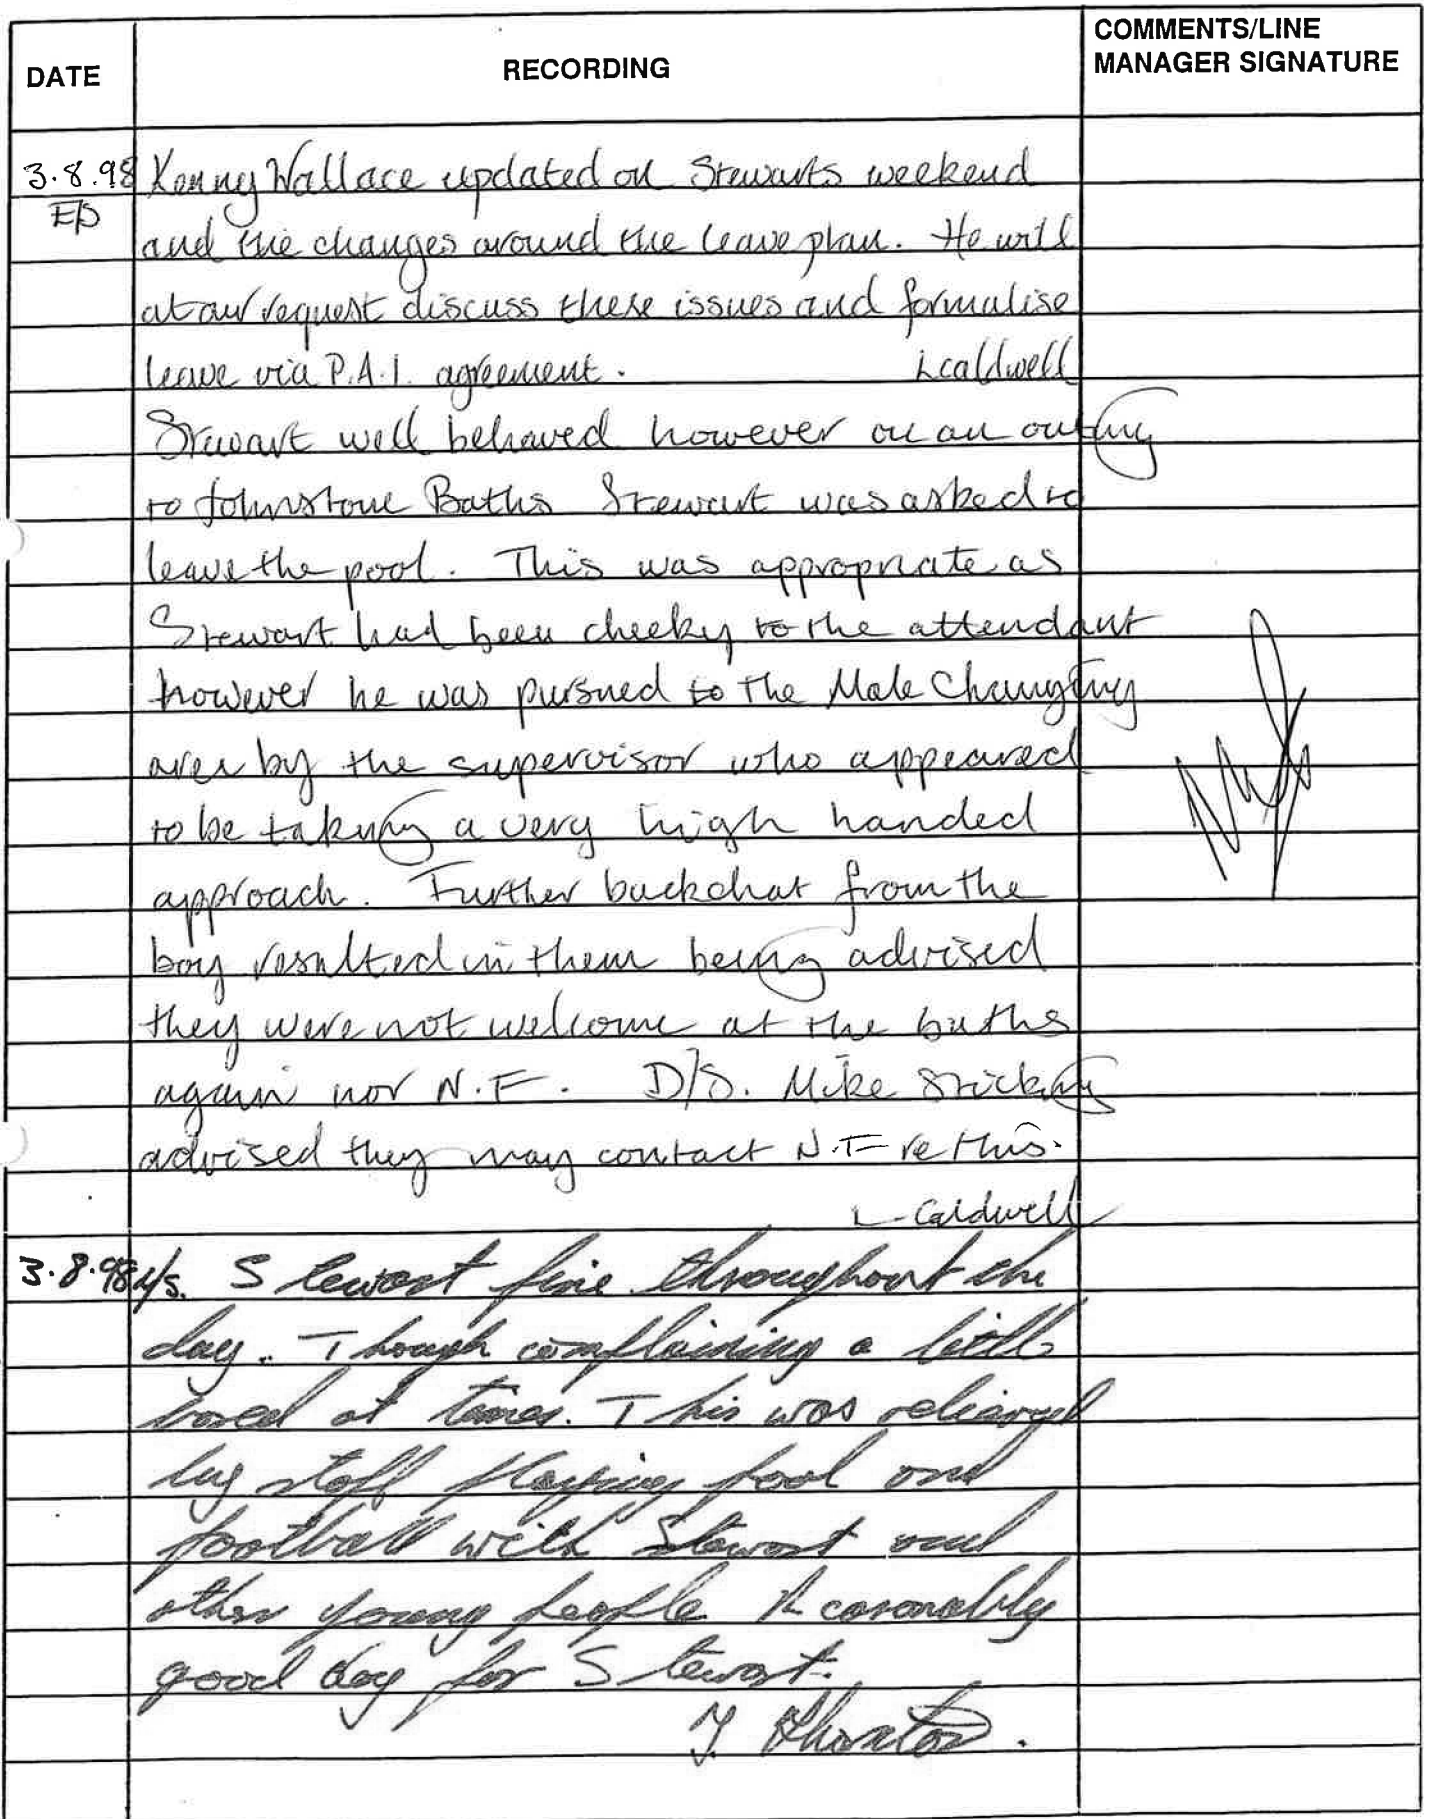 DATE
RECORDING
COMMENTS/LINE
MANAGER SIGNATURE
3.8.98 Kenny Wallace updated on Stewarts weekend
E/S
and the changes around the leave plan. He will
at our request discuss these issues and formalise
leave via P.A.1. agreement. L Caldwell
Stewart well behaved however on an outing
to Johnstone Baths Stewart was asked to
leave the pool. This was appropriate as
Stewart had been cheeky to the attendant
however he was pursued to the Male Changing
area by the supervisor who appeared
to be taking a very high handed
approach. Further backchat from the
boy resulted in them being advised
they were not welcome at the baths
again nor N.F. D/S. Mike
advised they may contact N.F re this.
L Caldwell
3.8.98 Stewart fine throughout the
day. Though complaining a little
bored at times. This was relieved
by staff playing pool and
football with Stewart and
other young people Reasonably
good day for Stewart.